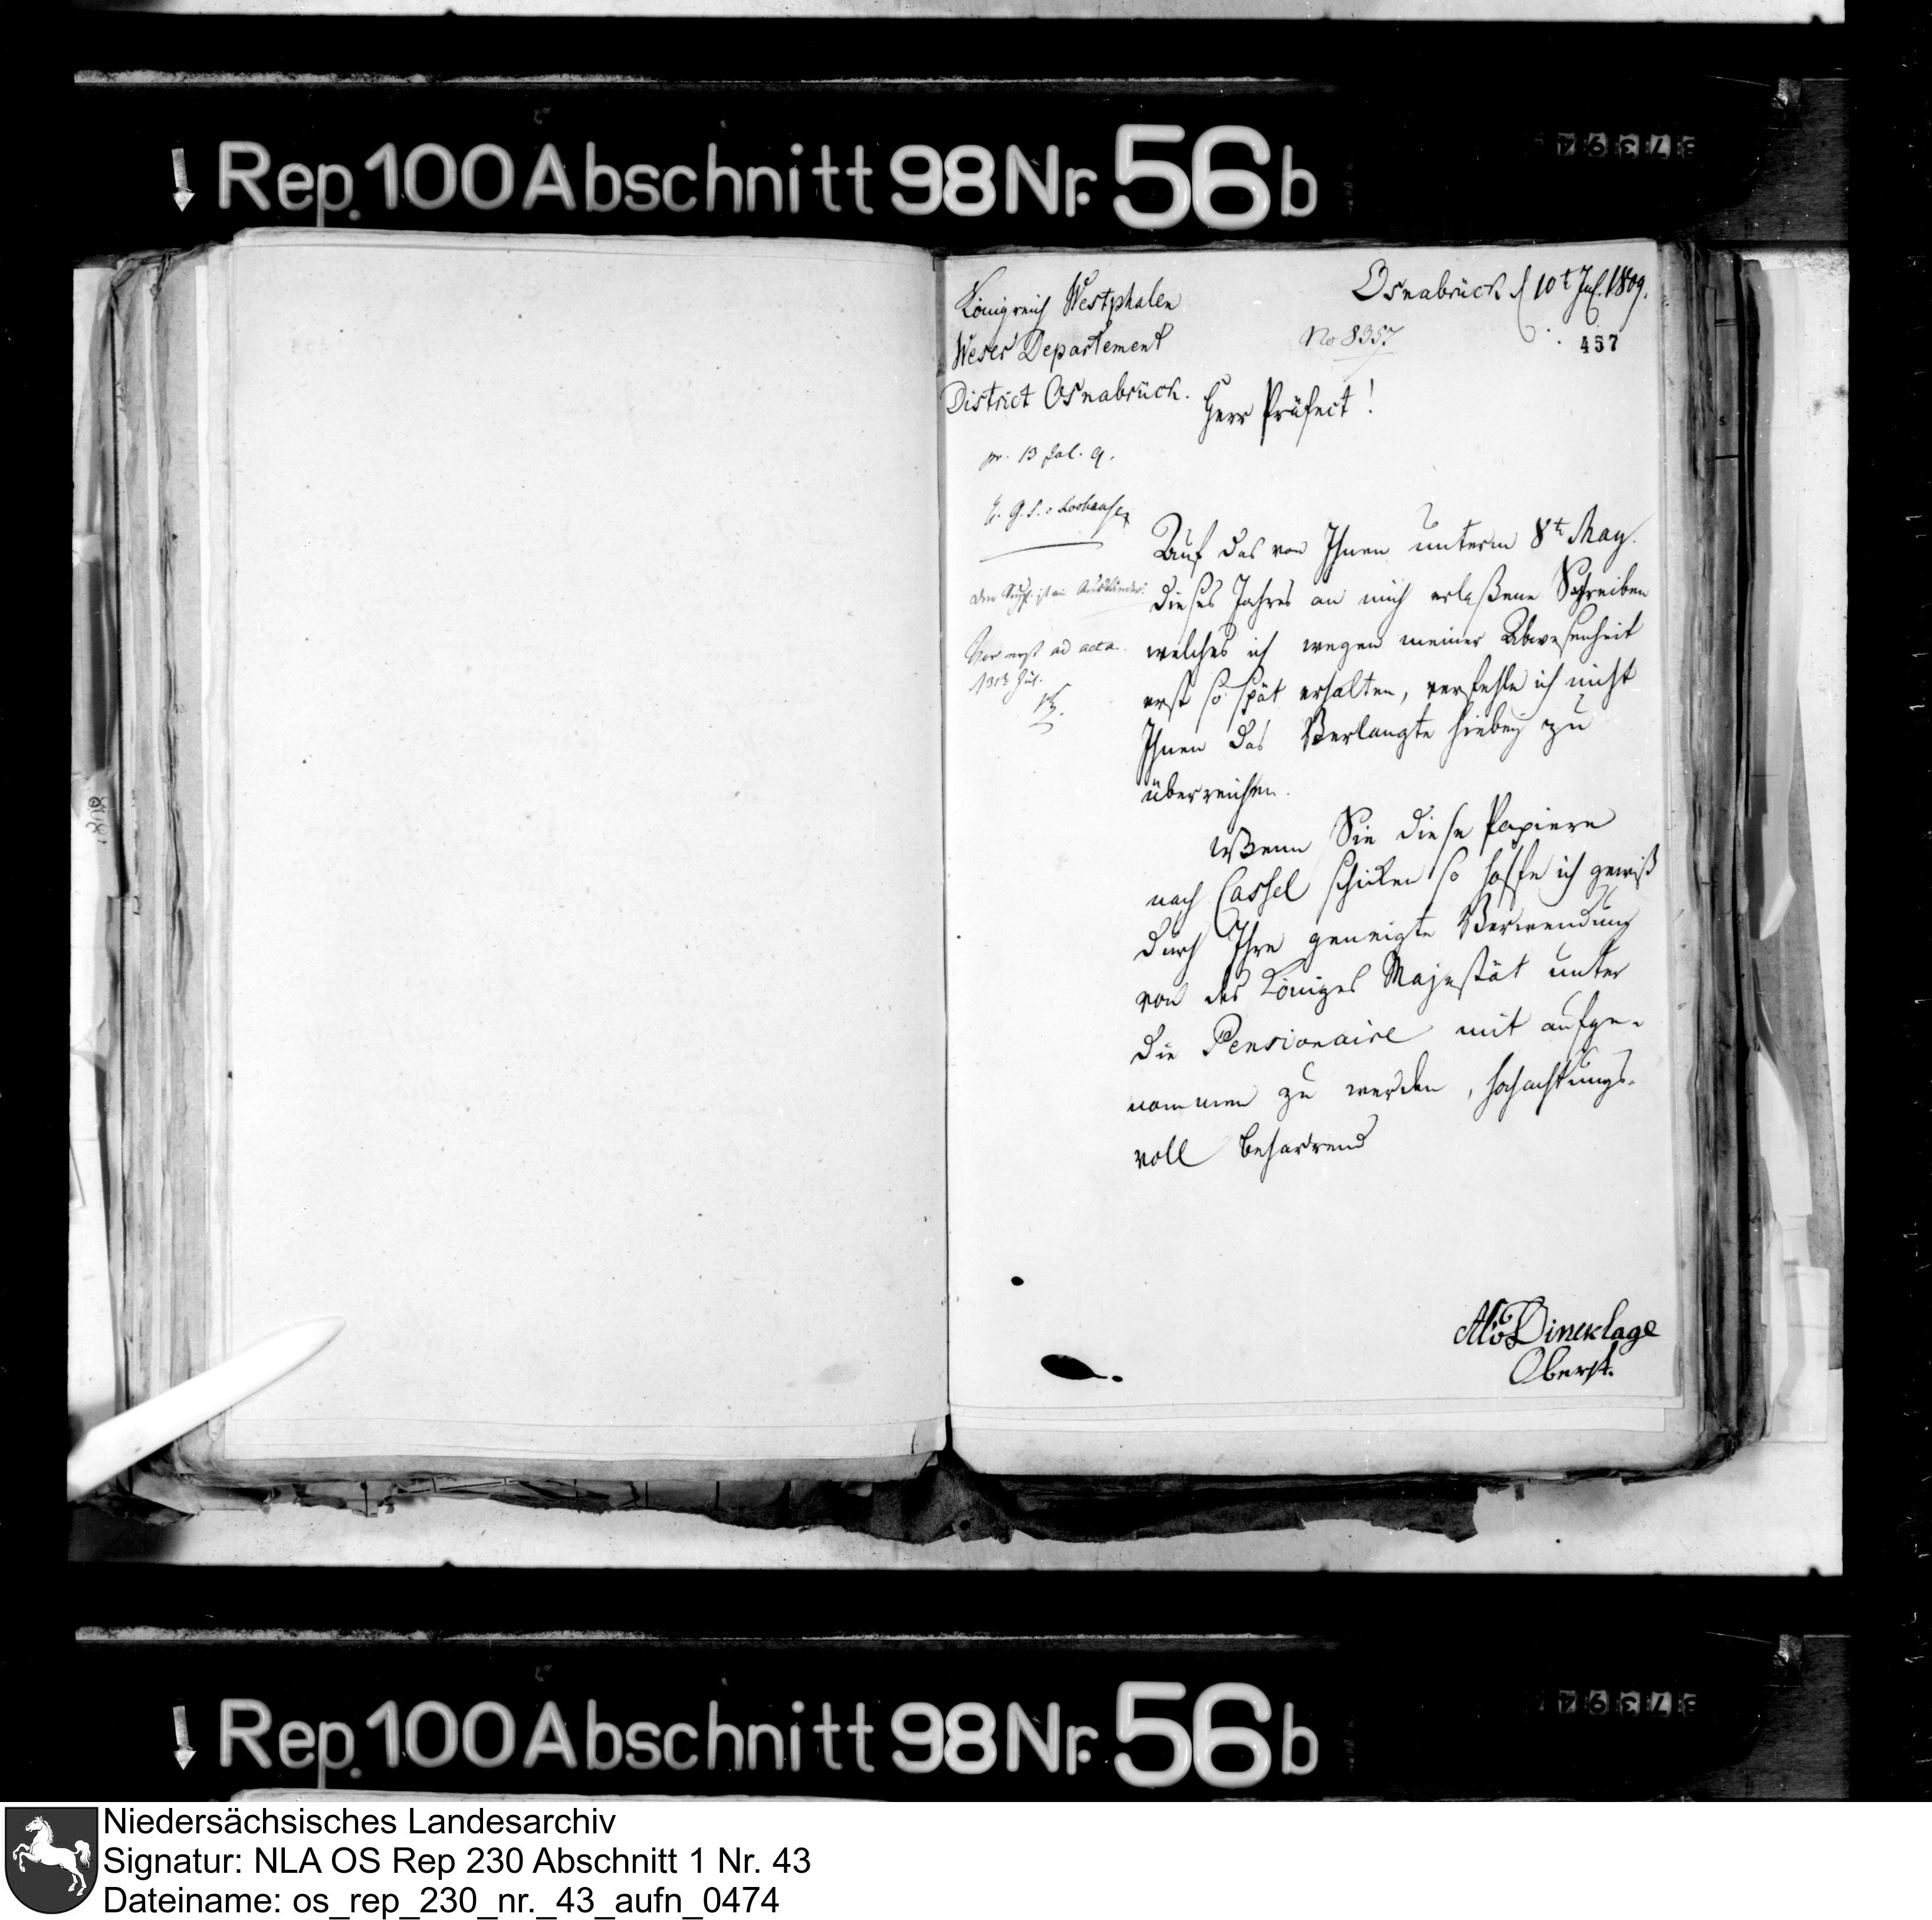 Rep. 100 Abschnitt 98 Nr. 56 b
Königreich Westphalen
Weser Departement
District Osnabrück.
Osnabrück d 10t Jul. 1809.
No 8357
457
Herr Präfect!
pr. 13 Jul. 9.
Vor erst ad acta.
13ten Jul.
Auf das von Ihnen unterm 8t May.
dieses Jahres an mich erlaßene Schreiben
welches ich wegen meiner Abwesenheit
erst so spät erhalten, verfehle ich nicht
Ihnen das Verlangte hiebey zu
überreichen.
Wenn Sie diese Papiere
nach Cassel schicken so hoffe ich gewiß
durch Ihre geneigte Verwendung
von des Königes Majestät unter
die Pensionaire mit aufge-
nommen zu werden, hochachtungs-
voll beharrend
Dincklage
Oberst.
Rep. 100 Abschnitt 98 Nr. 56 b
Niedersächsisches Landesarchiv
Signatur: NLA OS Rep 230 Abschnitt 1 Nr. 43
Dateiname: os_rep_230_nr._43_aufn_0474